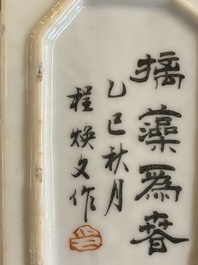 摛藻為春
乙巳秋月
程焕文作